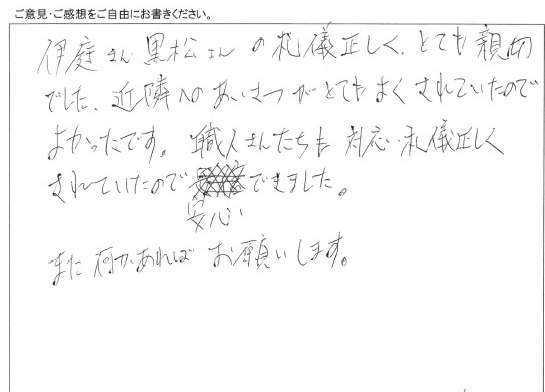 ご意見・ご感想をご自由にお書きください。
伊庭さん 黒松さん の礼儀正しく、とても親切
でした。近隣へのあいさつがとてもよくされていたので
よかったです。職人さんたちも 対応・礼儀正しく
されていたので できました。
安心
また何かあればお願いします。